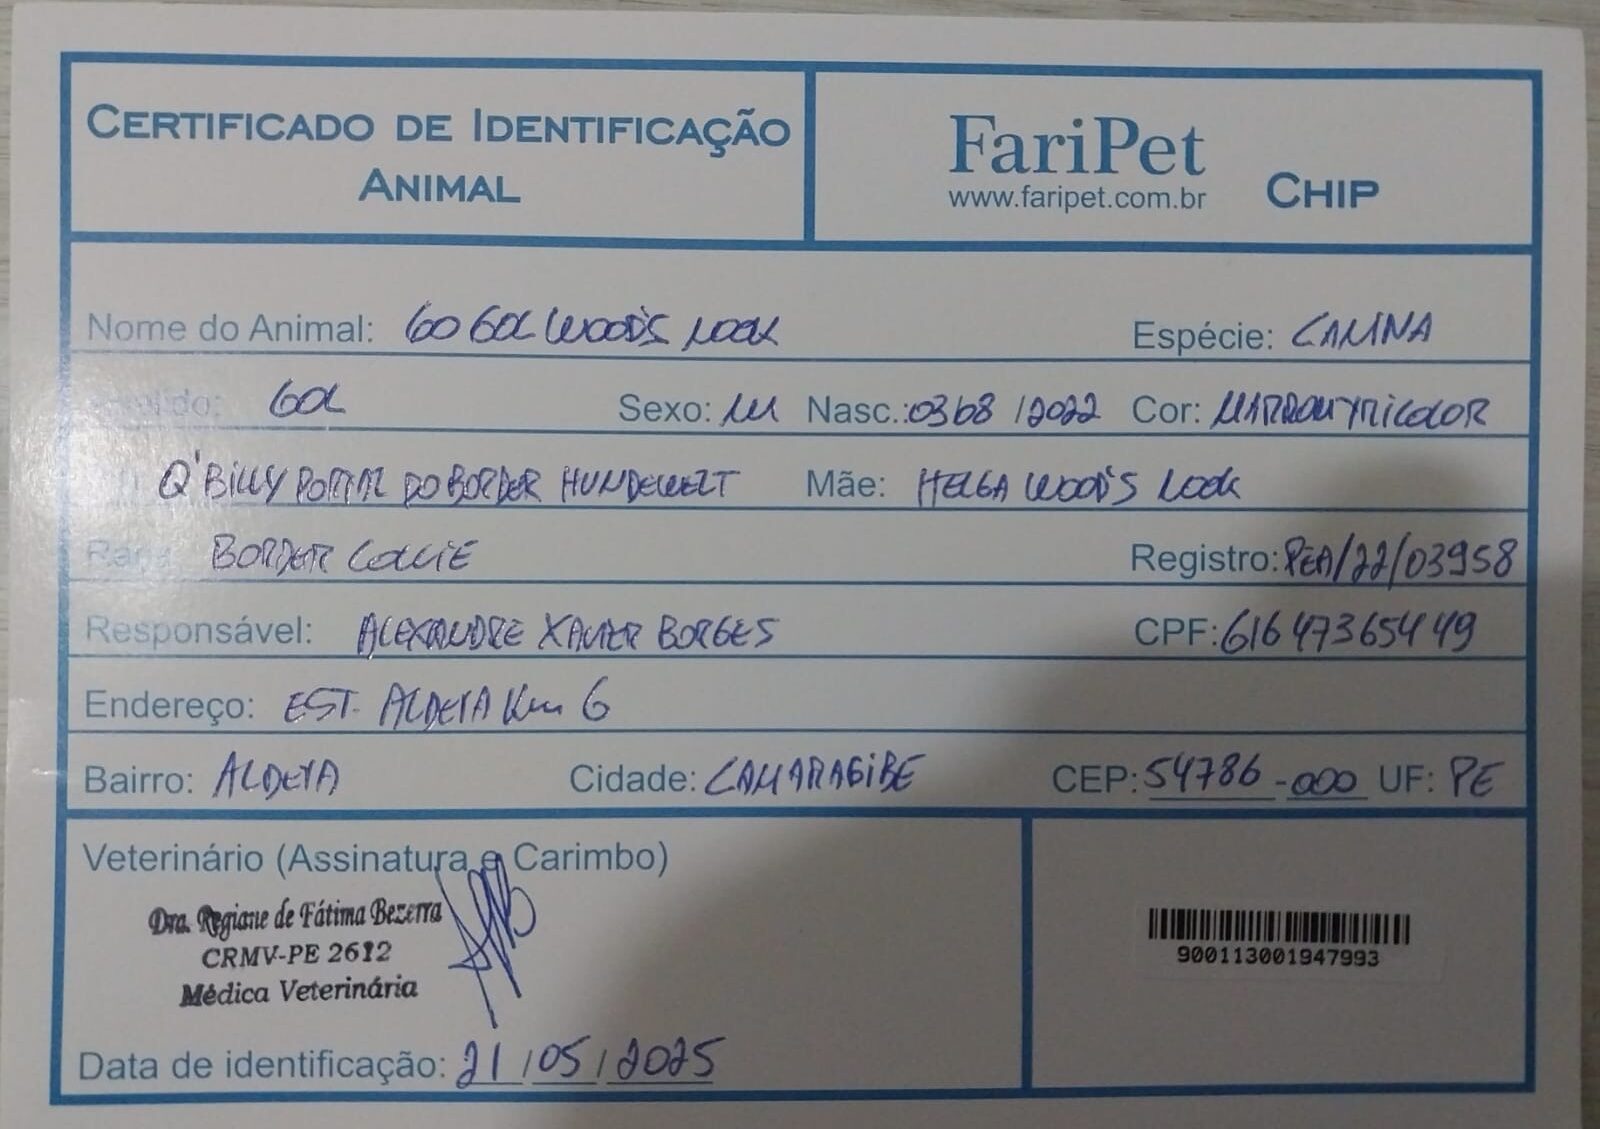 CERTIFICADO DE IDENTIFICAÇÃO
ANIMAL
FariPet
www.faripet.com.br
CHIP
Nome do Animal: GO GOL WOOD'S LOOK Espécie: CANINA
Apelido: GOL Sexo: M Nasc.: 03 08 / 2022 Cor: MARROM TRICOLOR
Q'BILLY PORTAL DO BORDER HUNDEWELT Mãe: HELGA WOOD'S LOOK
Raça: BORDER COLLIE Registro: PEA/22/03958
Responsável: ALEXANDRE XAVIER BORGES CPF: 616 473654 49
Endereço: EST. ALDEIA Km 6
Bairro: ALDEIA Cidade: CAMARAGIBE CEP: 54786-000 UF: PE
Veterinário (Assinatura e Carimbo)
Dra. Regiane de Fátima Bezerra
CRMV-PE 2612
Médica Veterinária
900113001947993
Data de identificação: 21 / 05 / 2025